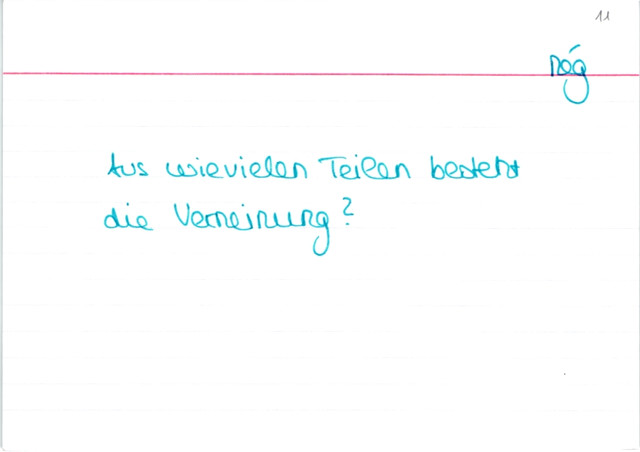 11
nég
Aus wievielen Teilen besteht
die Verneinung?